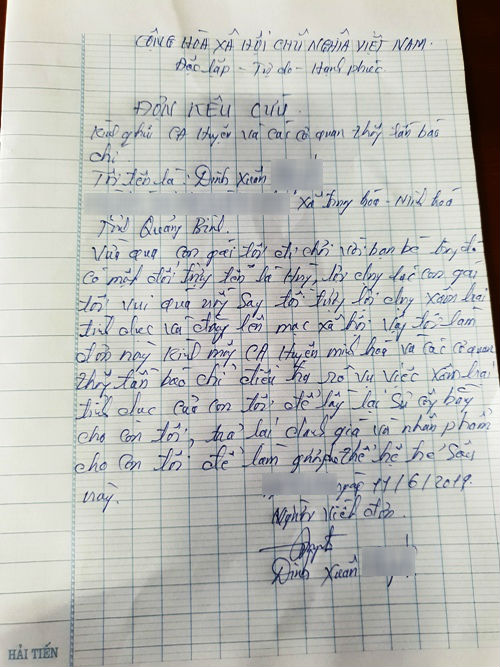 CỘNG HÒA XÃ HỘI CHỦ NGHĨA VIỆT NAM.
Độc lập - Tự do - Hạnh phúc
ĐƠN KÊU CỨU.
Kính gửi CA Huyện và các cơ quan thông tấn báo
chí.
Tôi tên là: Đinh Xuân
xã trung hóa - Minh hoá
Tỉnh Quảng Bình.
Vừa qua con gái tôi đi chơi với bạn bè trong đó
có một đối tượng tên là Huy, lợi dụng lúc con gái
tôi vui quá nên say đối tượng lợi dụng xâm hại
tình dục và đăng lên mạc xã hội vậy tôi làm
đơn này kính mong CA Huyện minh hoá và các cơ quan
thông tấn báo chí điều tra rõ vụ việc xâm hại
tình dục của con tôi để lấy lại sự công bằng
cho con tôi, trả lại danh giá và nhân phẩm
cho con tôi để làm gương cho thế hệ sau
này.
ngày 11/6/2019.
Người viết đơn.
Đinh Xuân
HẢI TIẾN